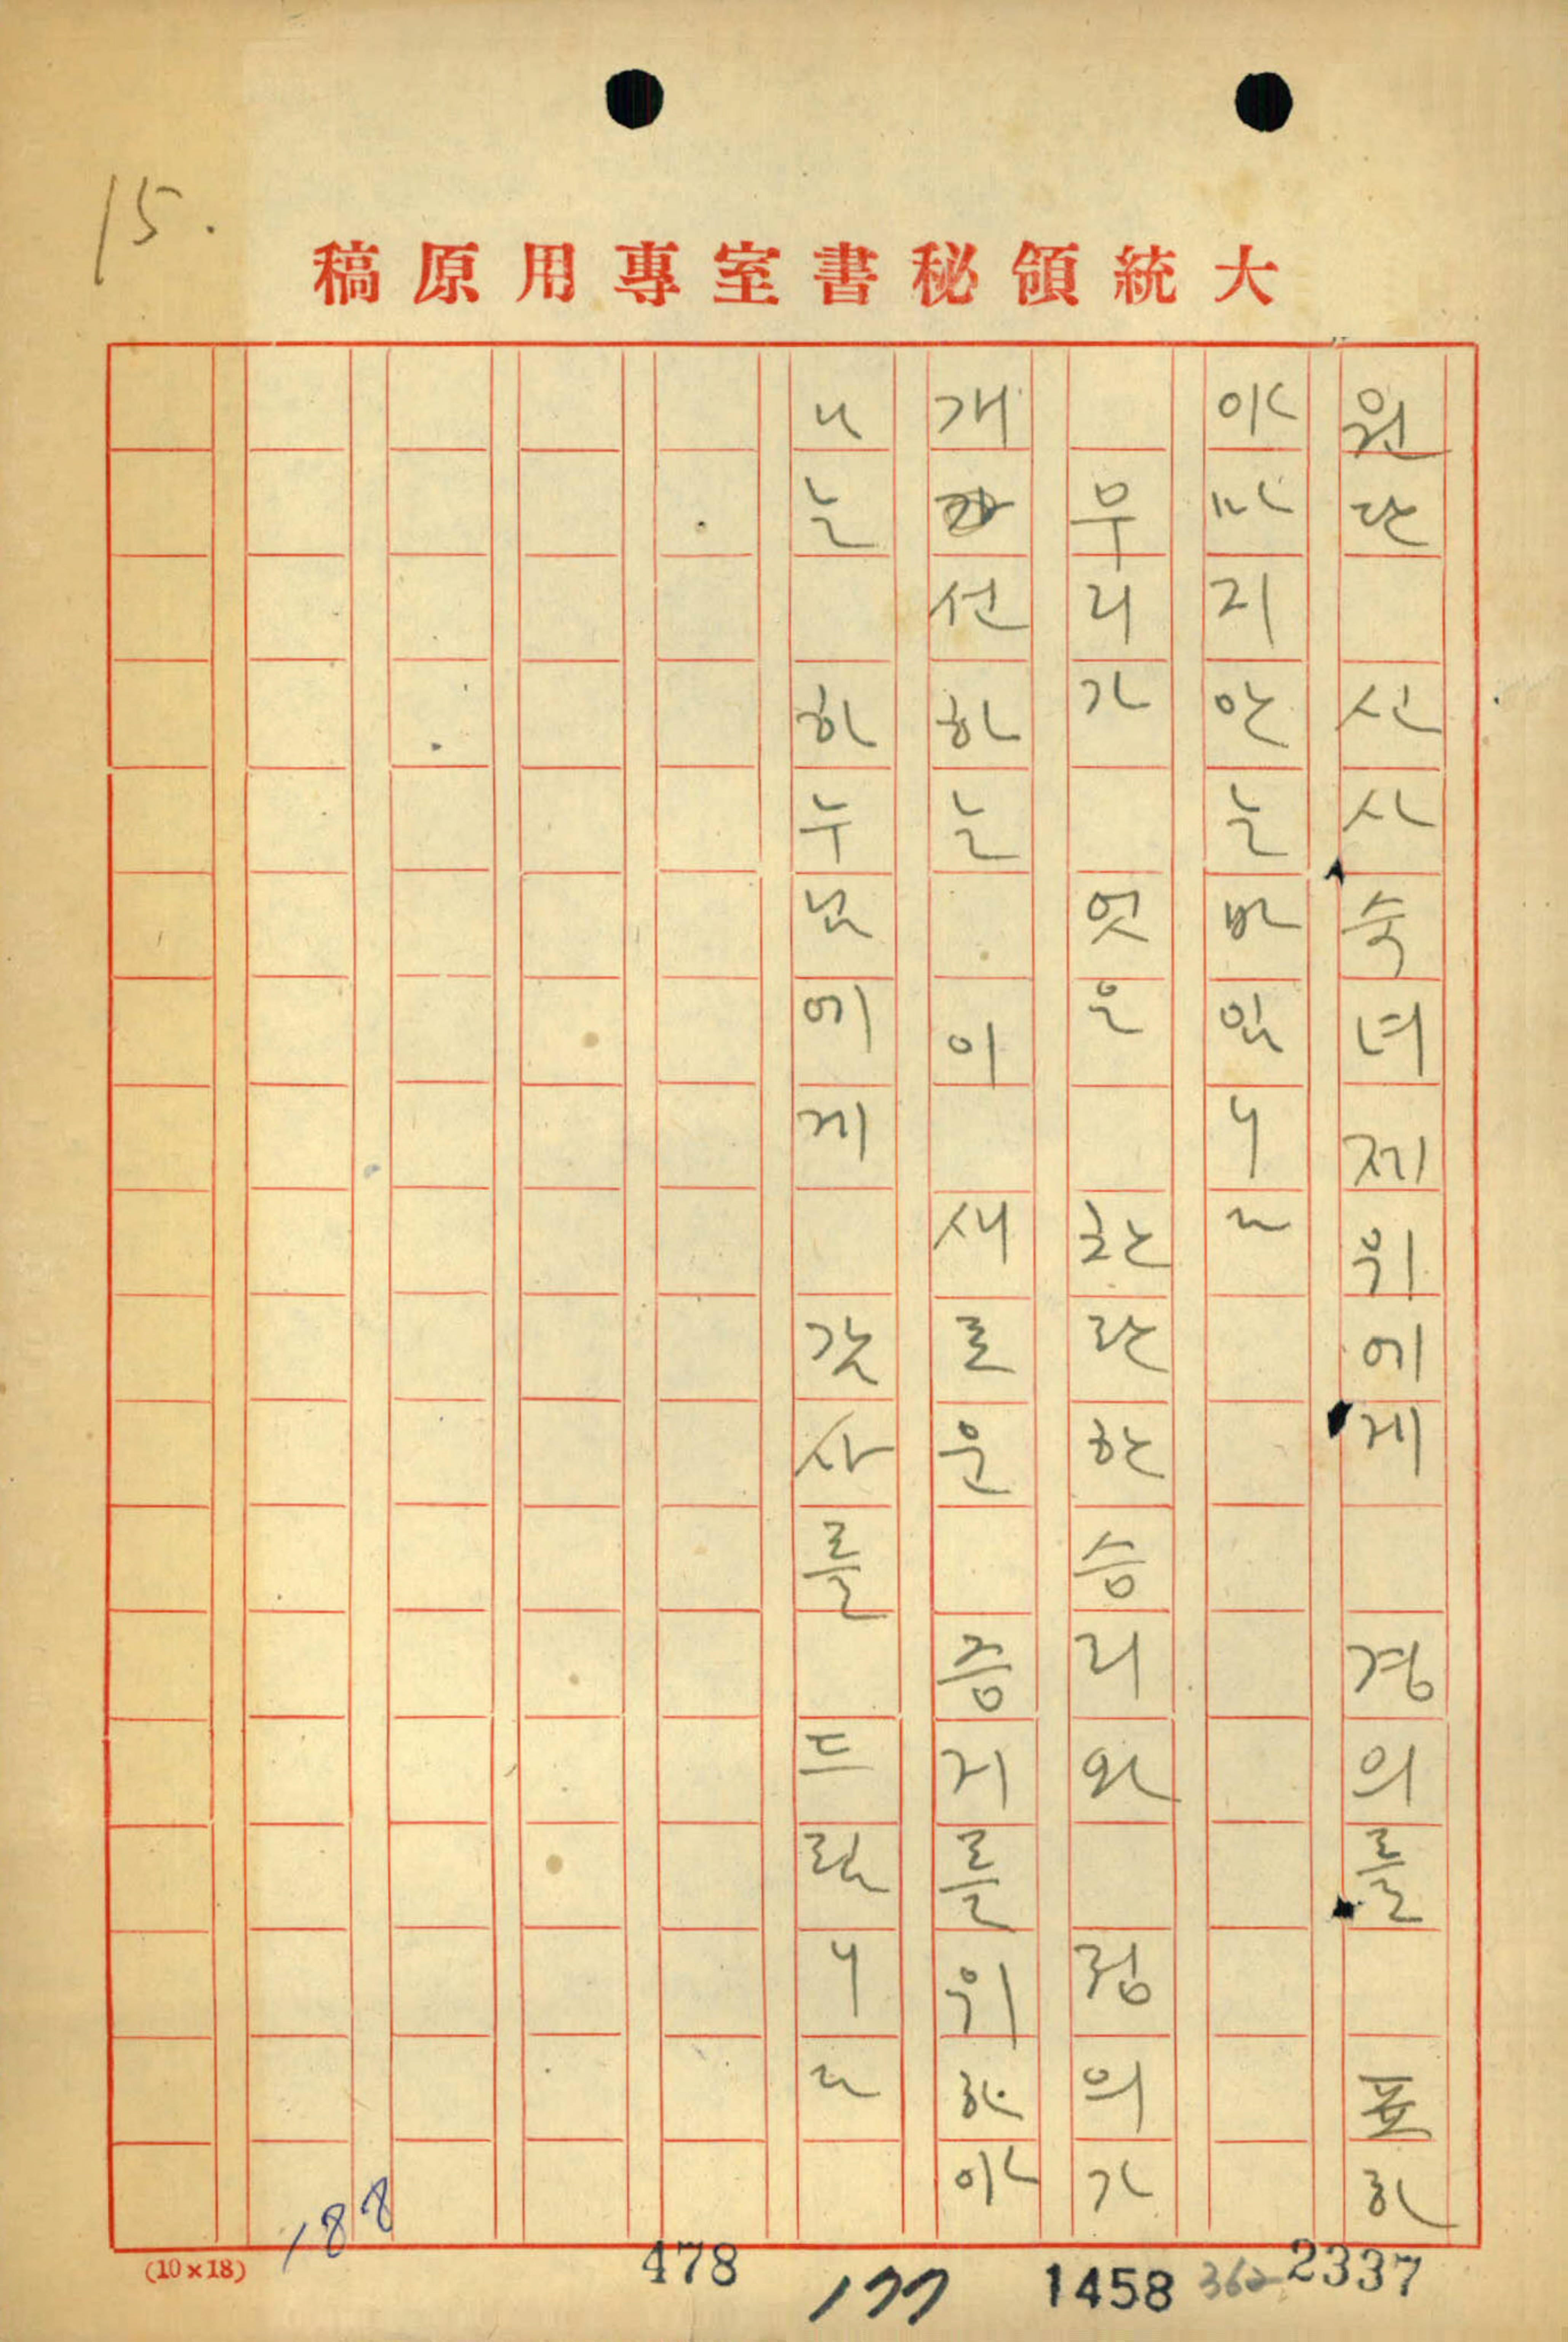 15.
大統領秘書室專用原稿
원단 신사숙녀제위에게 경의를 표하
야마지안는바임니다
우리가 엇은 찬란한승리와 정의가
개선하는 이 새로운 증거를위하야
나는 하누님에게 감사를 드림니다
(10×18)
188
478
177
1458
362
2337